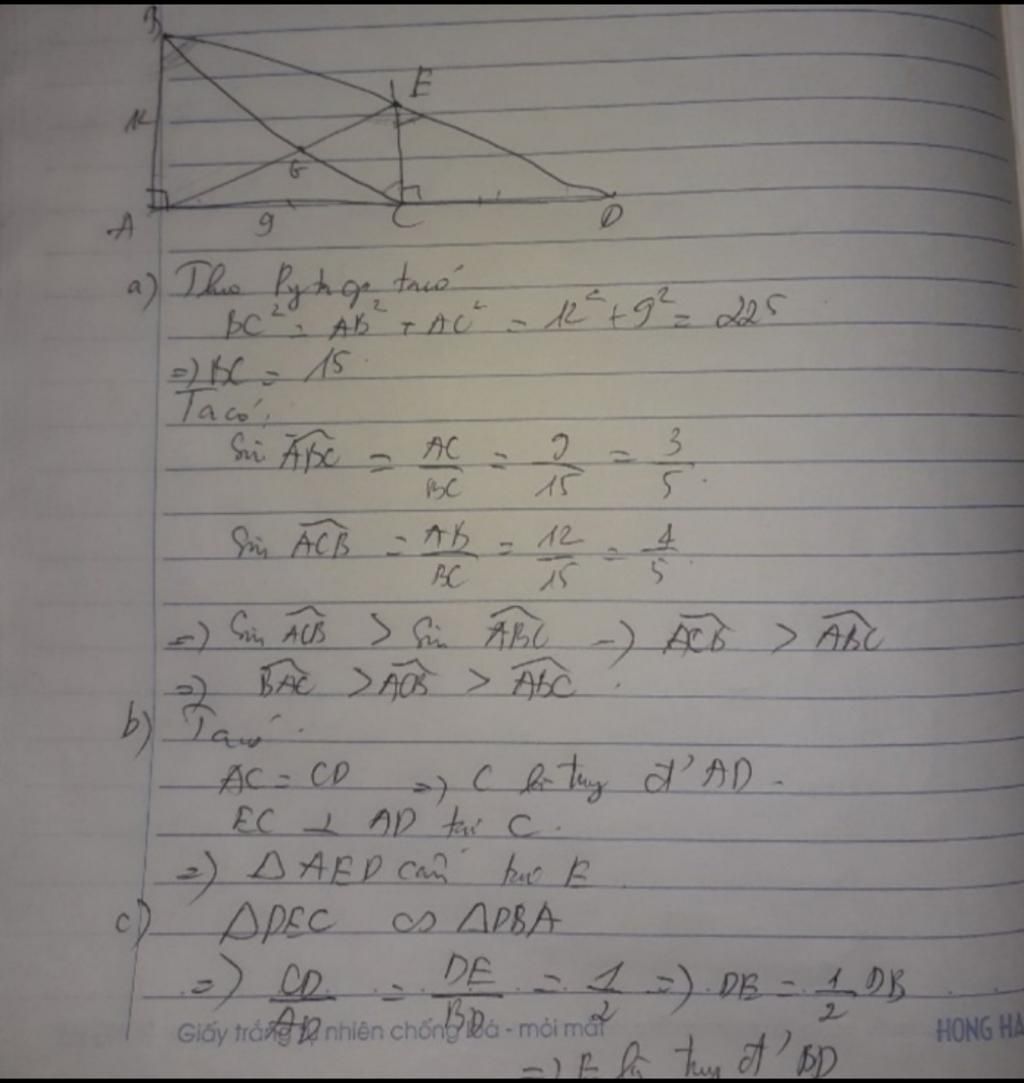 B
E
12
G
A
9
C
D
a) Theo Pytago ta có
BC² = AB² + AC² = 12² + 9² = 225
=) BC = 15
Ta có:
Sin ABC = AC/BC = 9/15 = 3/5.
Sin ACB = AB/BC = 12/15 = 4/5
=) Sin ACB > Sin ABC =) ACB > ABC
=) BAC > ACB > ABC.
b) Ta có:
AC = CD =) C là tung đ' AD.
EC ⊥ AD tại C.
=) △AED cân tại E
c) △DEC ∽ △DBA
=) CD/AD = DE/BD = 1/2 =) DE = 1/2 DB
Giấy trắng tự nhiên chống loá - mỏi mắt
HONG HA
=) E là tung đ' BD